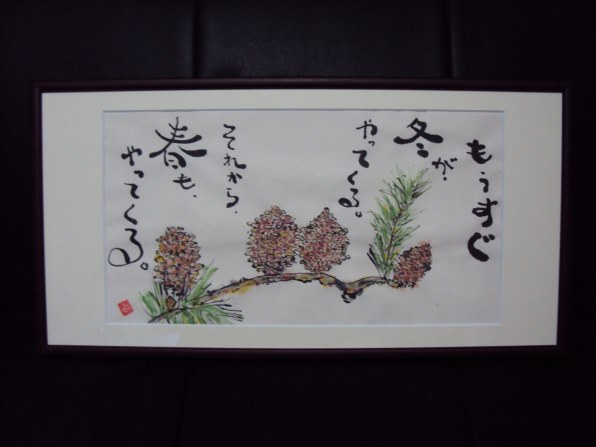 もうすぐ
冬が、
やってくる。
それから、
春も、
やってくる。